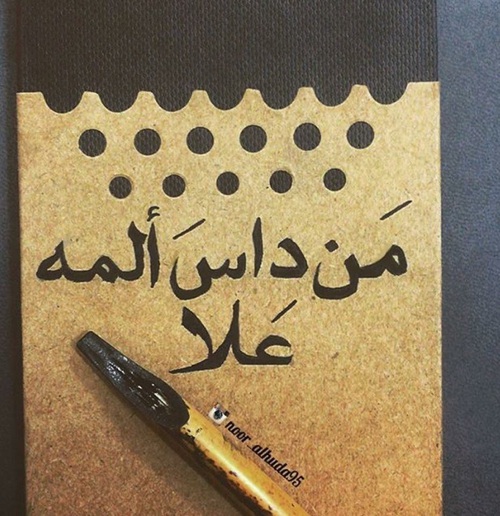 مَن داسَ ألمه
عَلا
noor_alhuda95